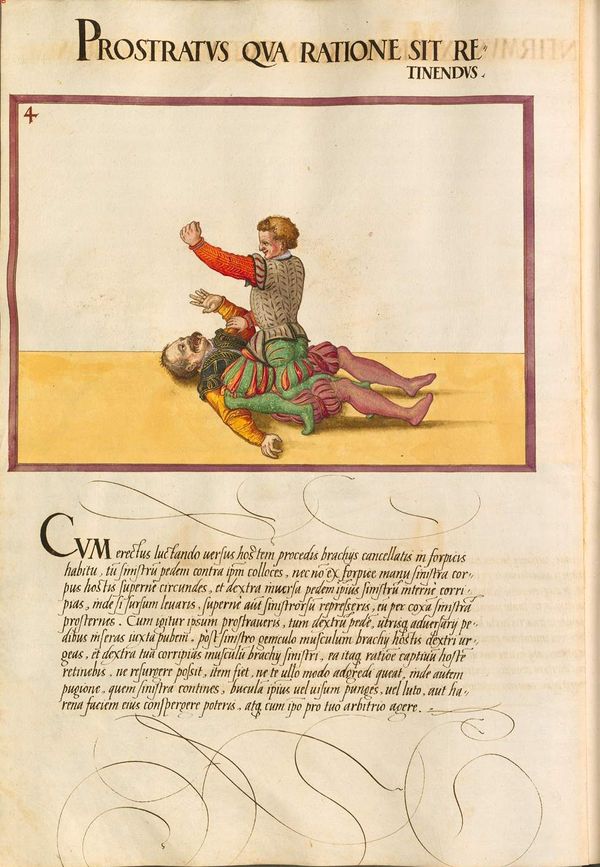 PROSTRATVS QVA RATIONE SIT RE-
TINENDVS.
4
CVM erectus luctando uersus hostem procedis brachijs cancellatis in forpicis
habitu, tū sinistrū pedem contra ipm̄ colloces, nec nō ex forpice manu sinistra cor-
pus hostis superne circundes, et dextra inuersa pedem ipsius sinistrū interne corri-
pias, inde si sursum leuaris, superne aūt sinistrorsū represseris, eū per coxā sinistrā
prosternes. Cum igitur ipsum prostraueris, tum dextrū pedē, utrisq̃ aduersarij pe-
dibus inseras iuxta pubem, post sinistro geniculo musculum brachij hostis dextri ur-
geas, et dextra tua corripias musculū brachij sinistri, ea itaq̃ ratiōe captiuū hostē
retinebis, ne resurgere possit, item fiet, ne te ullo modo adgredi queat, inde autem
pugione, quem sinistra contines, bucula ipsius uel uisum punges, uel luto, aut ha-
rena faciem eius conspergere poteris, atq̃ cum ipso pro tuo arbitrio agere.